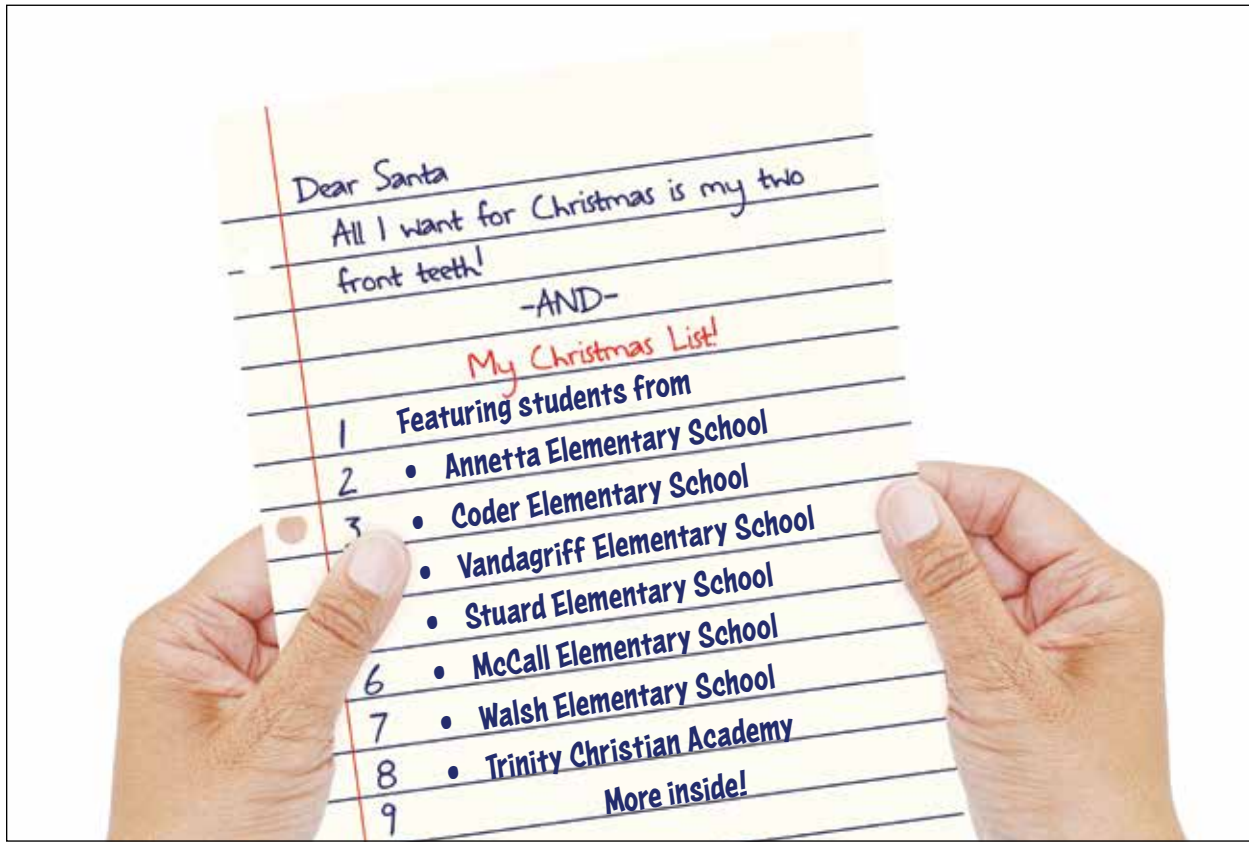 Dear Santa
All I want for Christmas is my two
front teeth!
-AND-
My Christmas List!
1 Featuring students from
2 • Annetta Elementary School
3 • Coder Elementary School
• Vandagriff Elementary School
• Stuard Elementary School
6 • McCall Elementary School
7 • Walsh Elementary School
8 • Trinity Christian Academy
9 More inside!